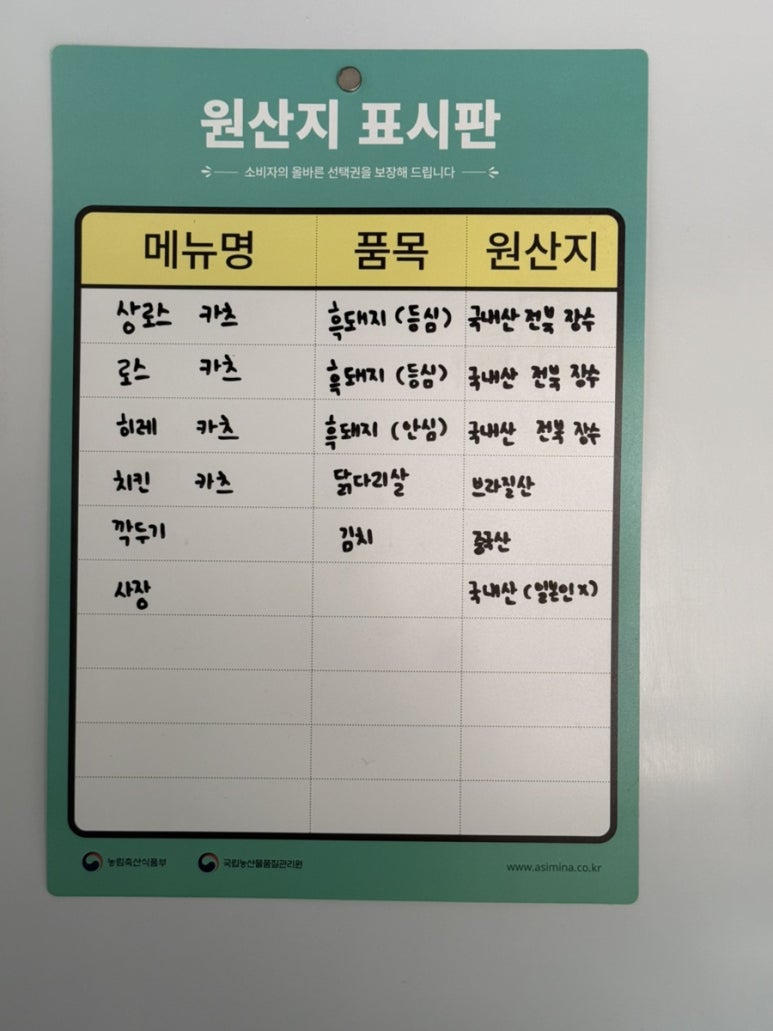 원산지 표시판
소비자의 올바른 선택권을 보장해 드립니다
메뉴명 품목 원산지
상로스 카츠 흑돼지 (등심) 국내산 전북 장수
로스 카츠 흑돼지 (등심) 국내산 전북 장수
히레 카츠 흑돼지 (안심) 국내산 전북 장수
치킨 카츠 닭다리살 브라질산
깍두기 김치 중국산
사장 국내산 (일본인 x)
농림축산식품부 국립농산물품질관리원 www.asimina.co.kr